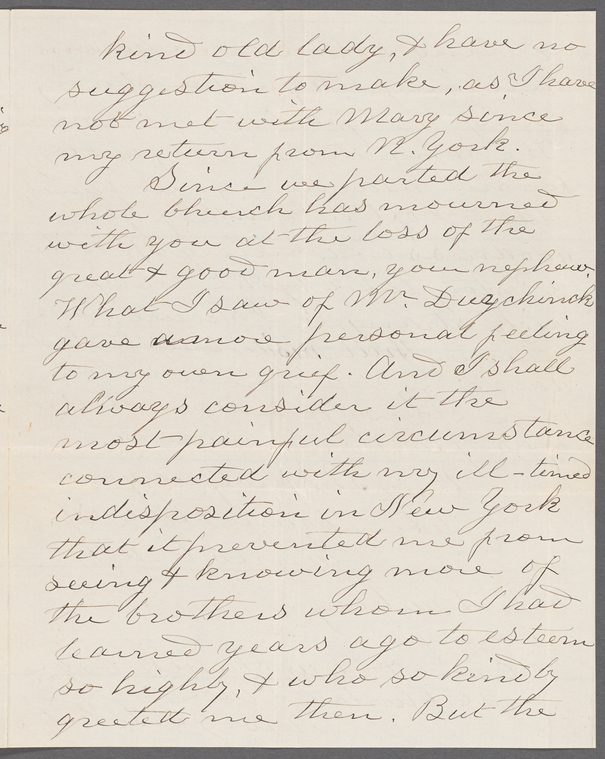 kind old lady, & have no
suggestion to make, as I have
not met with Mary since
my return from N. York.
Since we parted the
whole Church has mourned
with you at the loss of the
great & good man, your nephew.
What I saw of Mr. Duyckinck
gave a more personal feeling
to my own grief. And I shall
always consider it the
most painful circumstance
connected with my ill-timed
indisposition in New York
that it prevented me from
seeing & knowing more of
the brothers whom I had
learned years ago to esteem
so highly, & who so kindly
greeted me then. But the